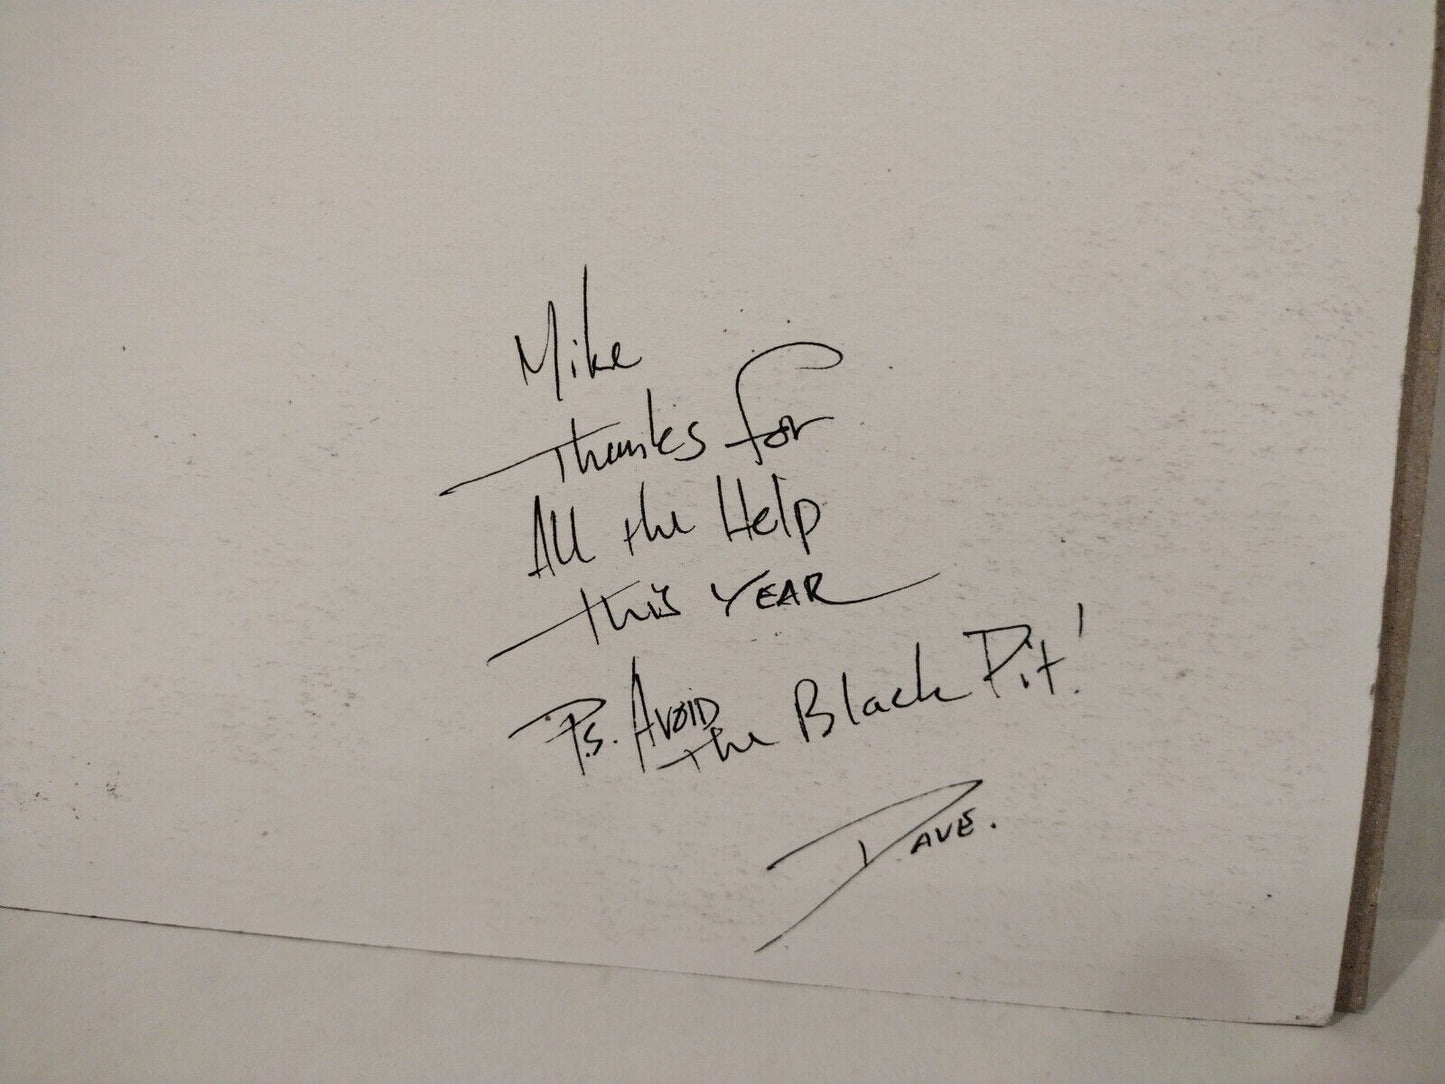 Mike
Thanks for
All the Help
this YEAR
Ps. AVOID
the Black Pit!
DAVE.